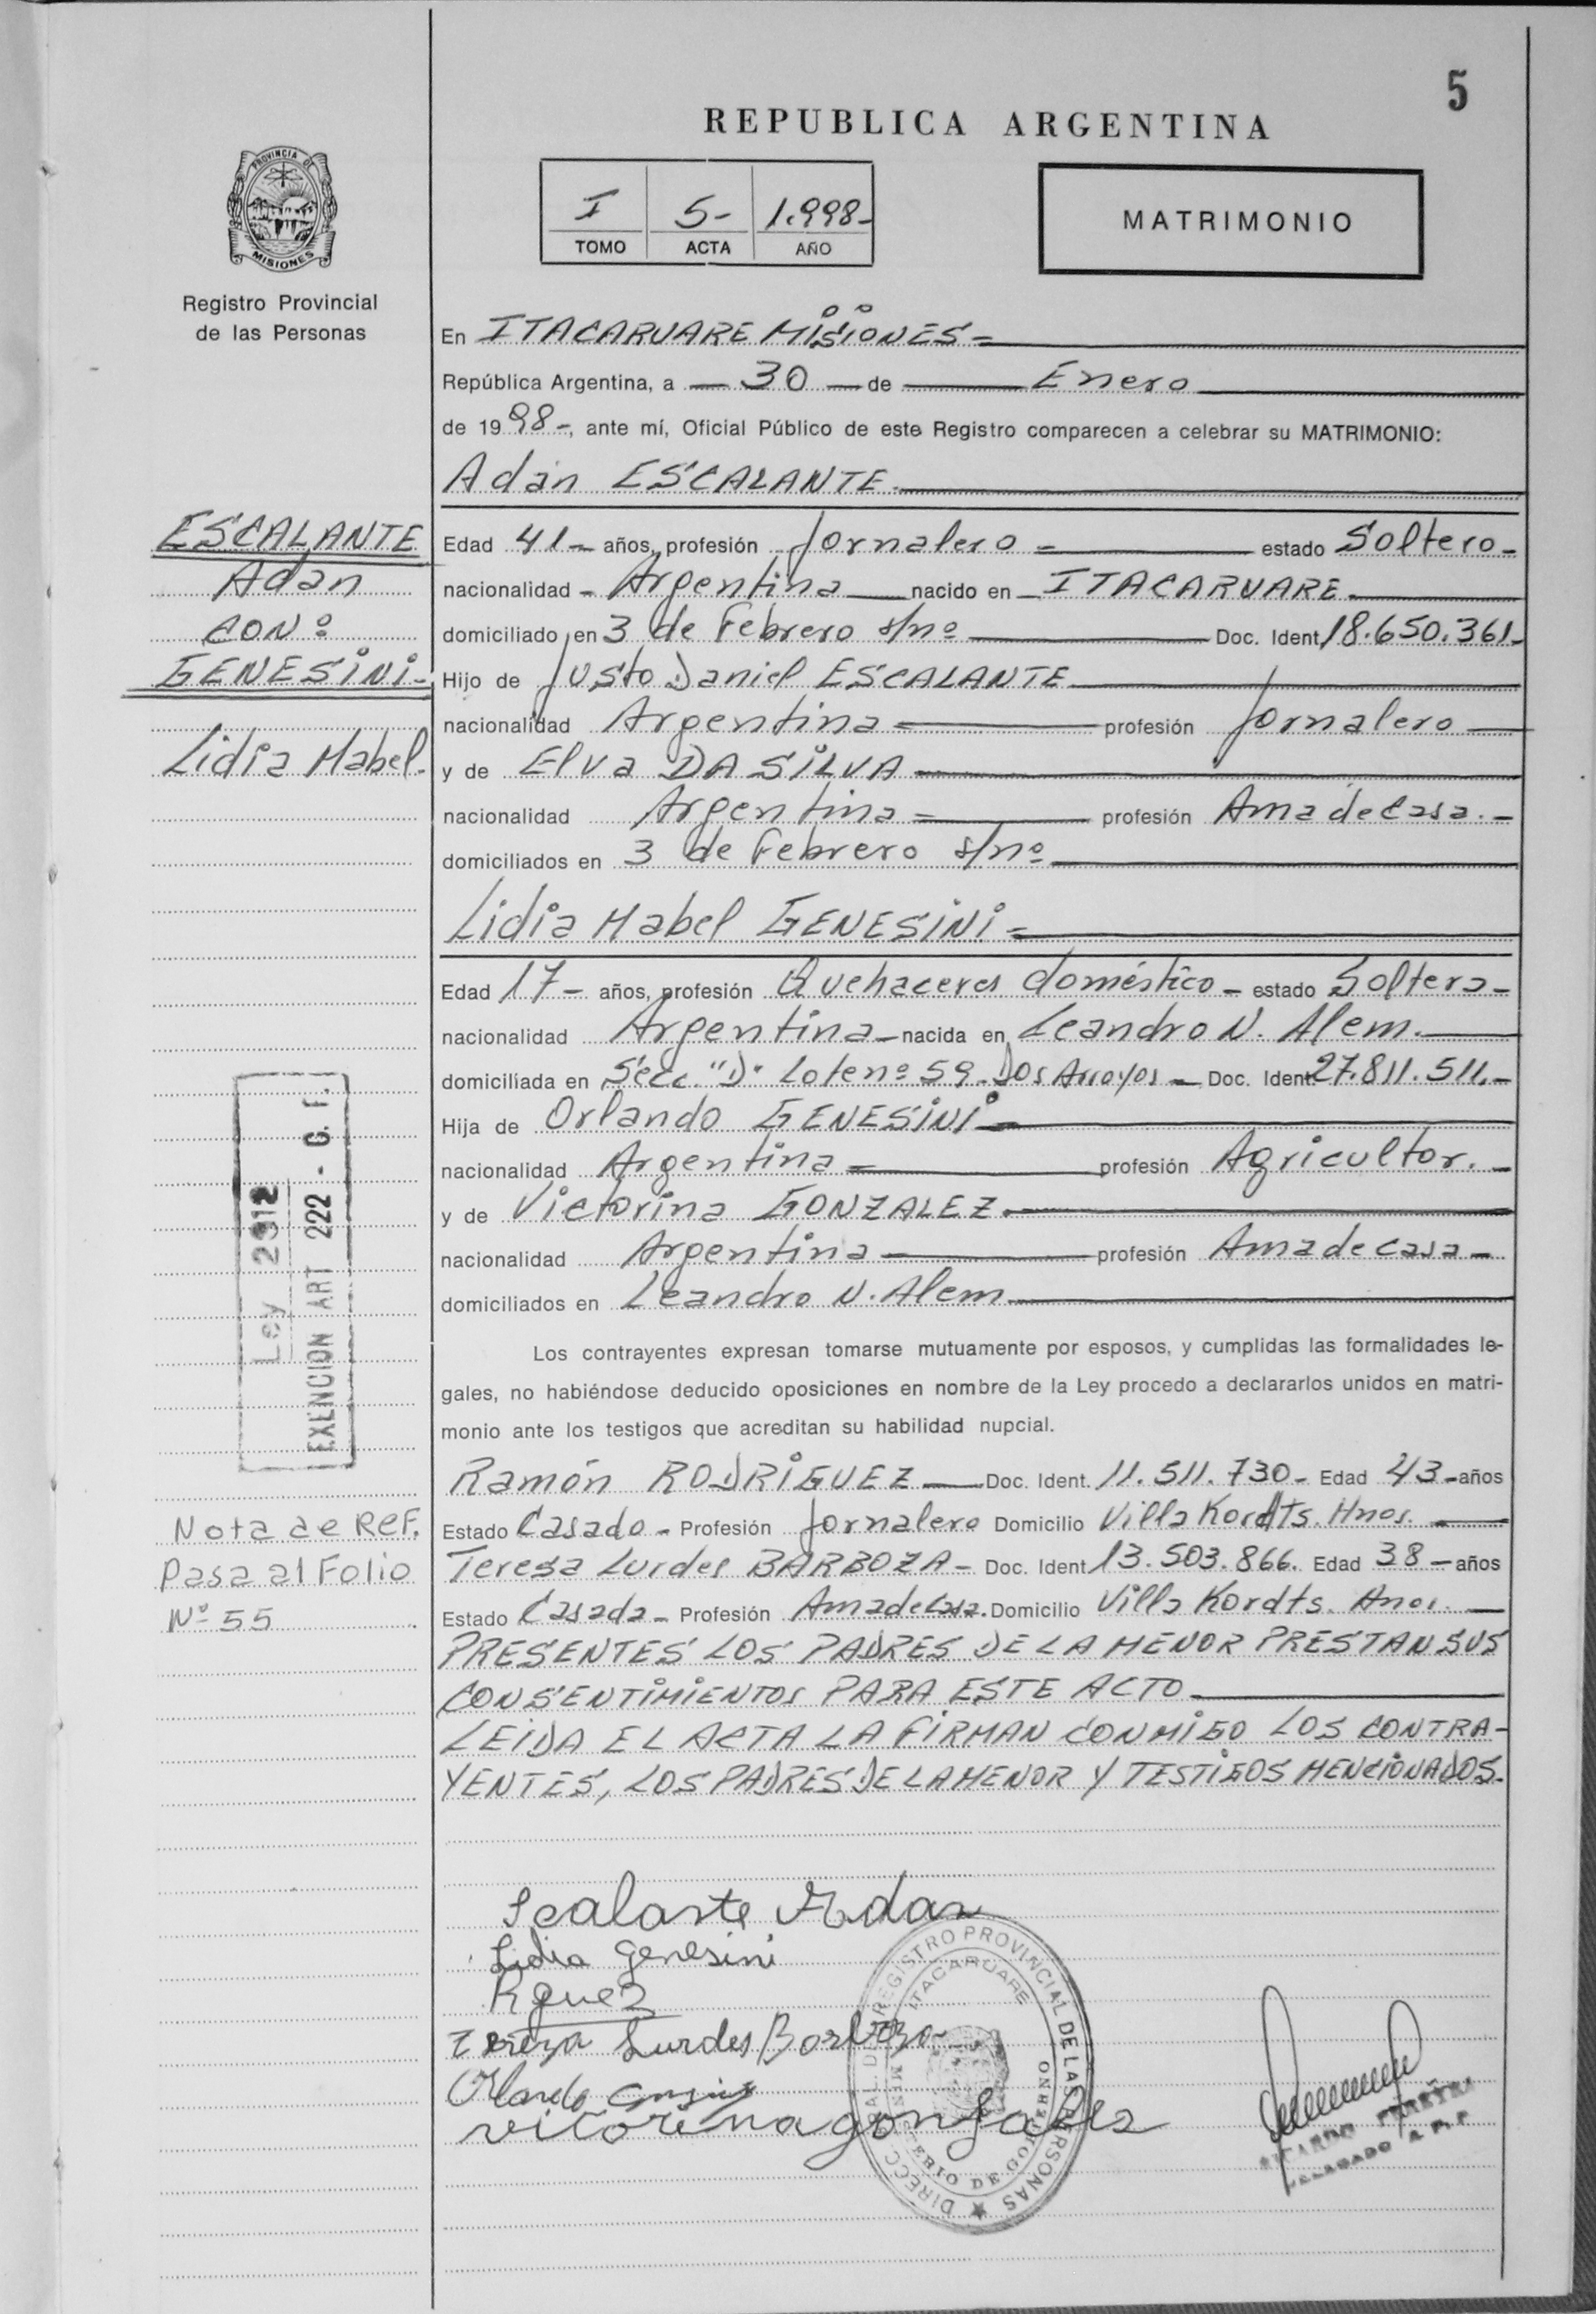 5
REPUBLICA ARGENTINA
PROVINCIA DE
MISIONES
Registro Provincial
de las Personas
I 5- 1.998-
TOMO ACTA AÑO
MATRIMONIO
En ITACARUARE MISIONES =
República Argentina, a — 30 — de — Enero
de 1998-, ante mí, Oficial Público de este Registro comparecen a celebrar su MATRIMONIO:
Adán ESCALANTE.
ESCALANTE
Adan
CON º
GENESINI-
Lidia Mabel.
Edad 41- años, profesión Jornalero = estado Soltero-
nacionalidad - Argentina nacido en ITACARUARE.
domiciliado en 3 de Febrero s/nº Doc. Ident 18.650.361-
Hijo de Justo Daniel ESCALANTE
nacionalidad Argentina = profesión Jornalero
y de Elva DA SILVA
nacionalidad Argentina = profesión Ama de Casa.-
domiciliados en 3 de Febrero s/nº
Lidia Mabel GENESINI =
Edad 17- años, profesión Quehaceres doméstico - estado Soltera-
nacionalidad Argentina - nacida en Leandro N. Alem.
domiciliada en Secc. "D" Lote nº 59 - Dos Arroyos - Doc. Ident. 27.811.511.-
Hija de Orlando GENESINI
nacionalidad Argentina = profesión Agricultor.-
y de Victorina GONZALEZ.
nacionalidad Argentina profesión Ama de casa-
domiciliados en Leandro N. Alem
Ley 2312
EXENCION ART 222 - C. F.
Los contrayentes expresan tomarse mutuamente por esposos, y cumplidas las formalidades le-
gales, no habiéndose deducido oposiciones en nombre de la Ley procedo a declararlos unidos en matri-
monio ante los testigos que acreditan su habilidad nupcial.
Ramón RODRIGUEZ Doc. Ident. 11.511.730- Edad 43-años
Estado Casado - Profesión Jornalero Domicilio Villa Kordts. Hnos.
Teresa Lurdes BARBOZA - Doc. Ident 13.503.866. Edad 38-años
Estado Casada - Profesión Ama de Casa. Domicilio Villa Kordts. Hnos.
PRESENTES LOS PADRES DE LA MENOR PRESTAN SUS
CONSENTIMIENTOS PARA ESTE ACTO
LEIDA EL ACTA LA FIRMAN CONMIGO LOS CONTRA-
YENTES, LOS PADRES DE LA MENOR Y TESTIGOS MENCIONADOS.
Nota de Ref.
Pasa al Folio
Nº 55
Scalante Adan
Lidia Genesini
Rguez
Tereza Lurdes Barboza
Orlando
vitorina gonsales
REGISTRO PROVINCIAL DE LAS PERSONAS
ITACARUARE
MINISTERIO DE GOBIERNO
RICARDO PEREYRA
DELEGADO R.P.P.